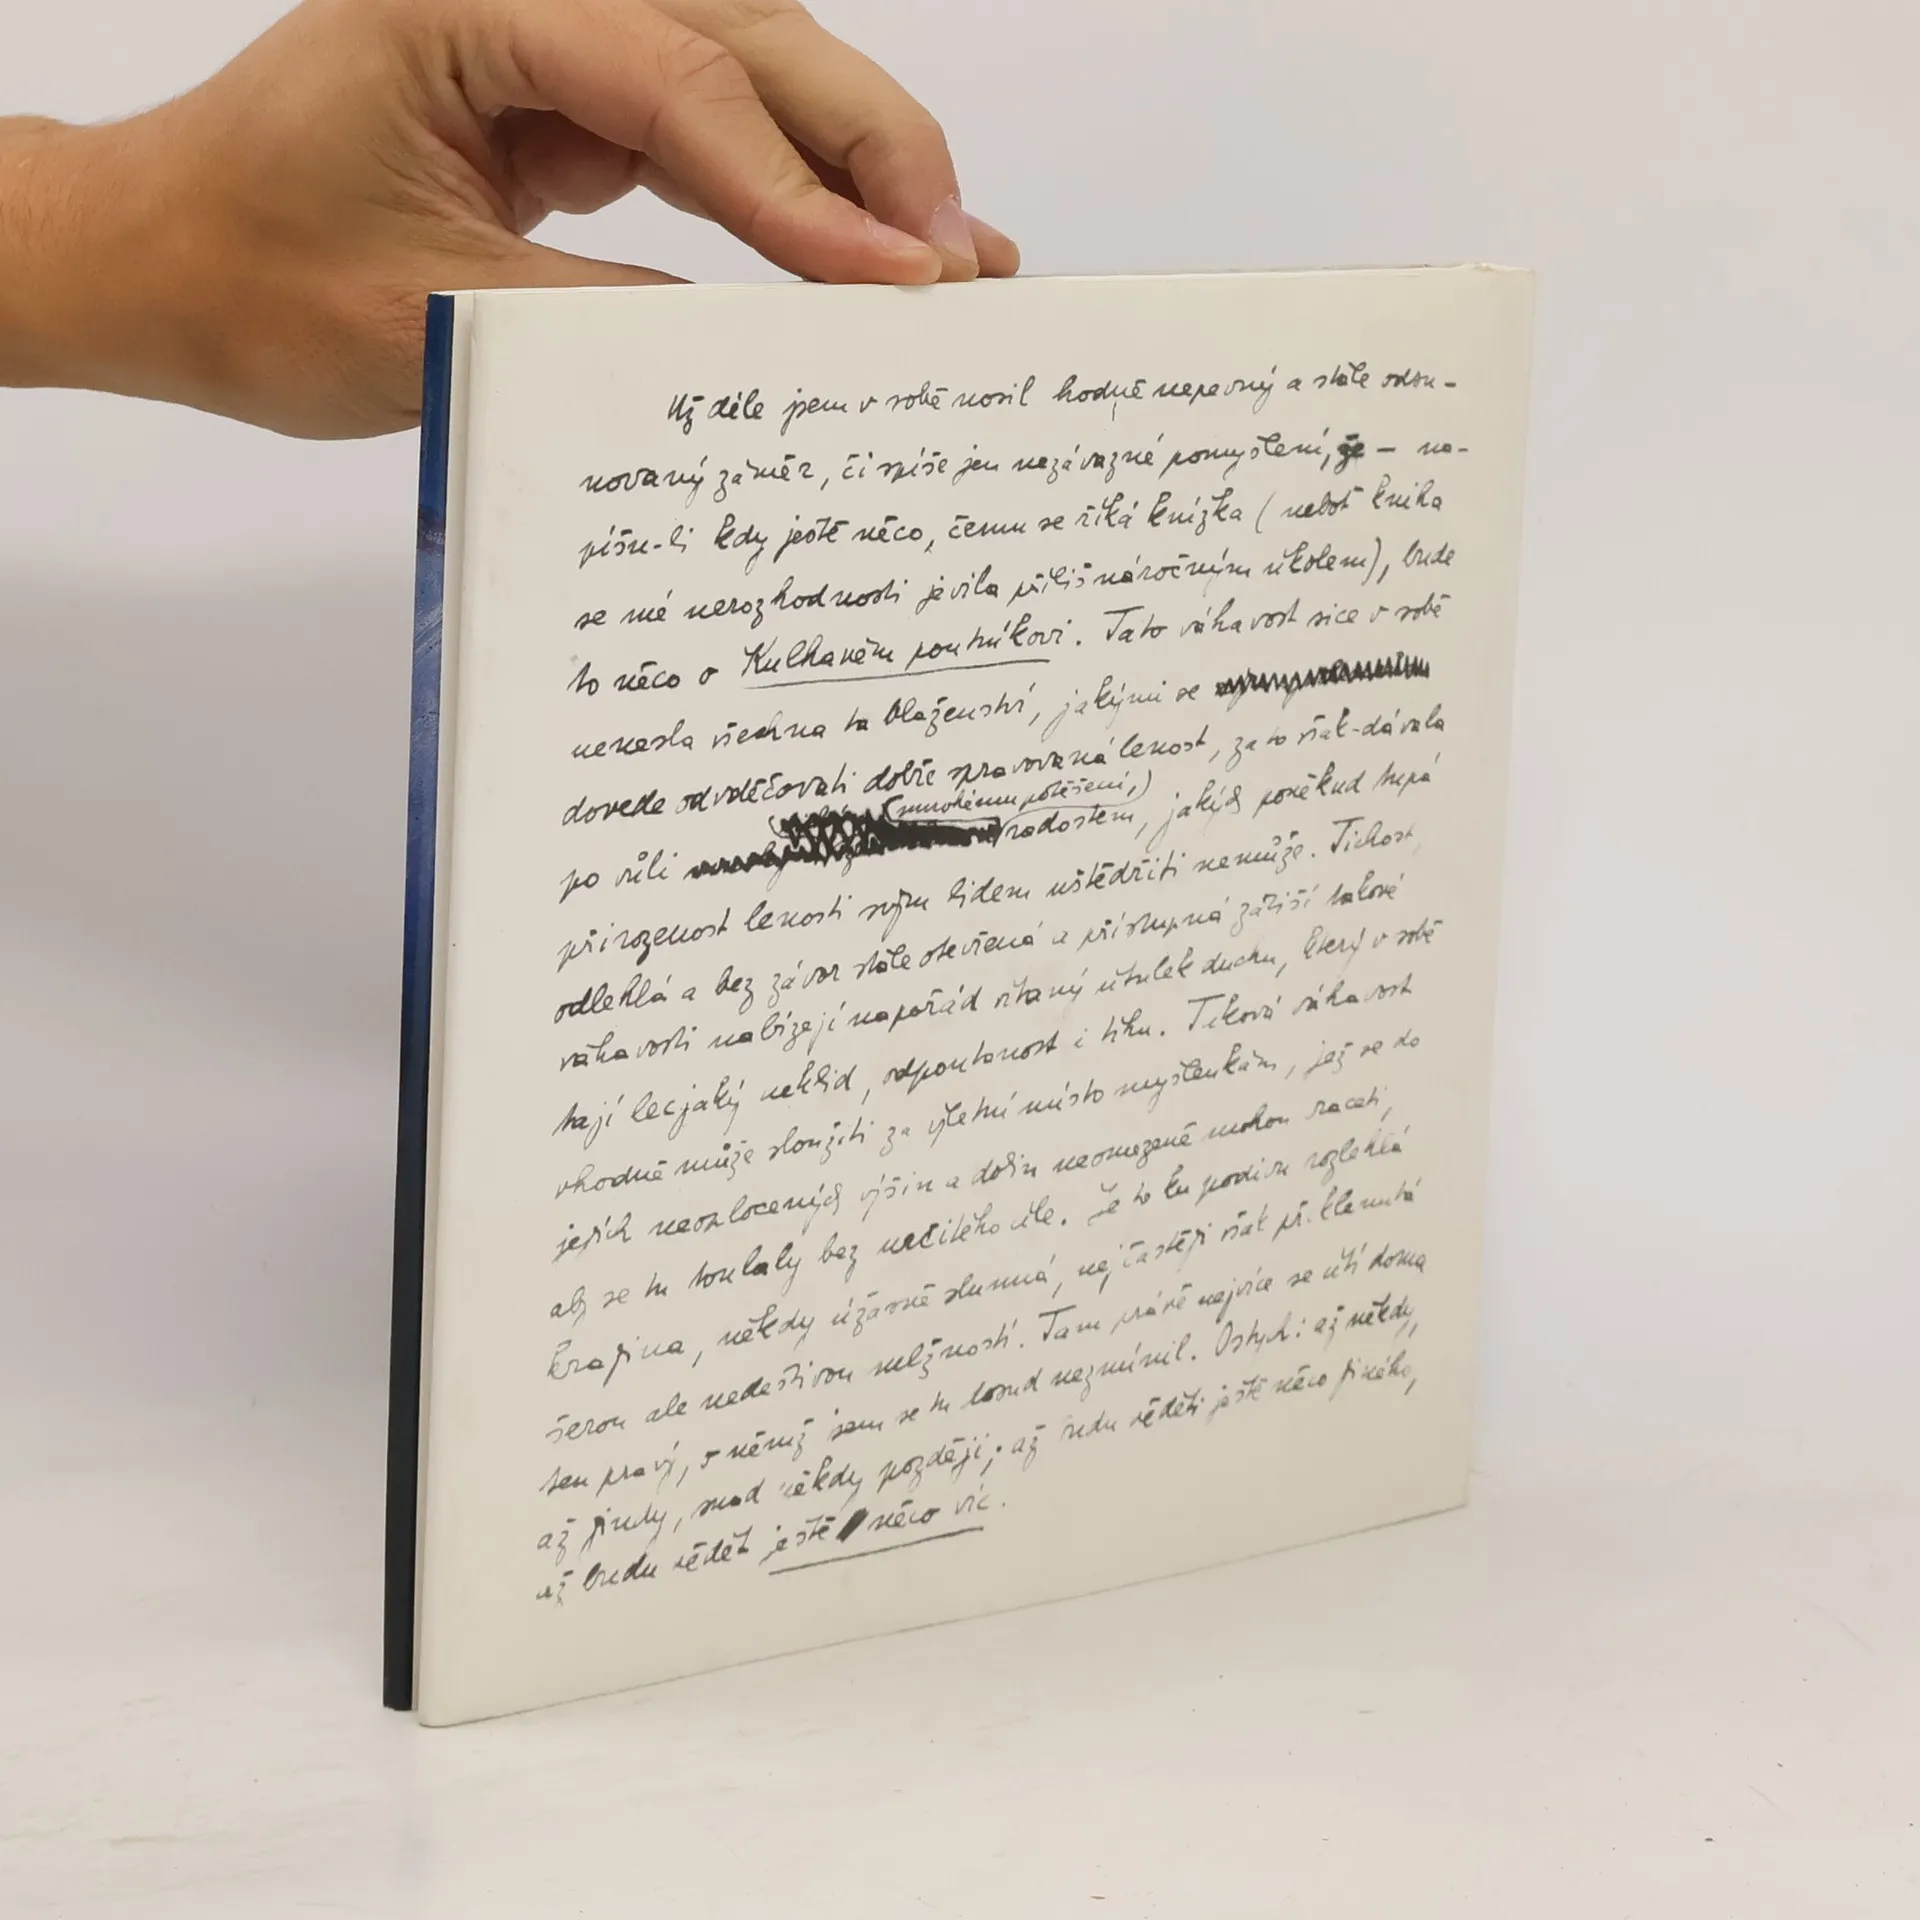 Už déle jsem v sobě nosil hodně nepevný a stále odsu-
novaný záměr, či spíše jen nezávazné pomyšlení, že – na-
píšu-li kdy ještě něco, čemu se říká knížka (neboť kniha
se mé nerozhodnosti jevila příliš náročným úkolem), bude
to něco o Kulhavém poutníkovi. Tato váhavost sice v sobě
nenesla všechna ta blaženství, jakými se
dovede odvděčovati dobře spravovaná lenost, za to však dávala
(mnohému potěšení,)
po vůli radostem, jakých poněkud tupá
přirozenost lenosti svým lidem uštědřiti nemůže. Tichost,
odlehlá a bez závor stále otevřená a přístupná zátiší takové
váhavosti nabízejí napořád vítaný útulek duchu, který v sobě
tají lecjaký neklid, odpoutanost i tíhu. Taková váhavost
vhodně může sloužiti za výletní místo myšlenkám, jež se do
jejích neoplocených výšin a dolin neomezeně mohou raceti,
aby se tu toulaly bez určitého cíle. Je to ku podivu rozlehlá
krajina, někdy úžasně slunná, nejčastěji však překlenutá
šerou ale nedeštivou mlžností. Tam právě nejvíce se cítí doma
ten pravý, o němž jsem se tu dosud nezmínil. Ostych: až někdy,
až jindy, snad někdy později; až budu věděti ještě něco jiného,
až budu vědět ještě něco víc.